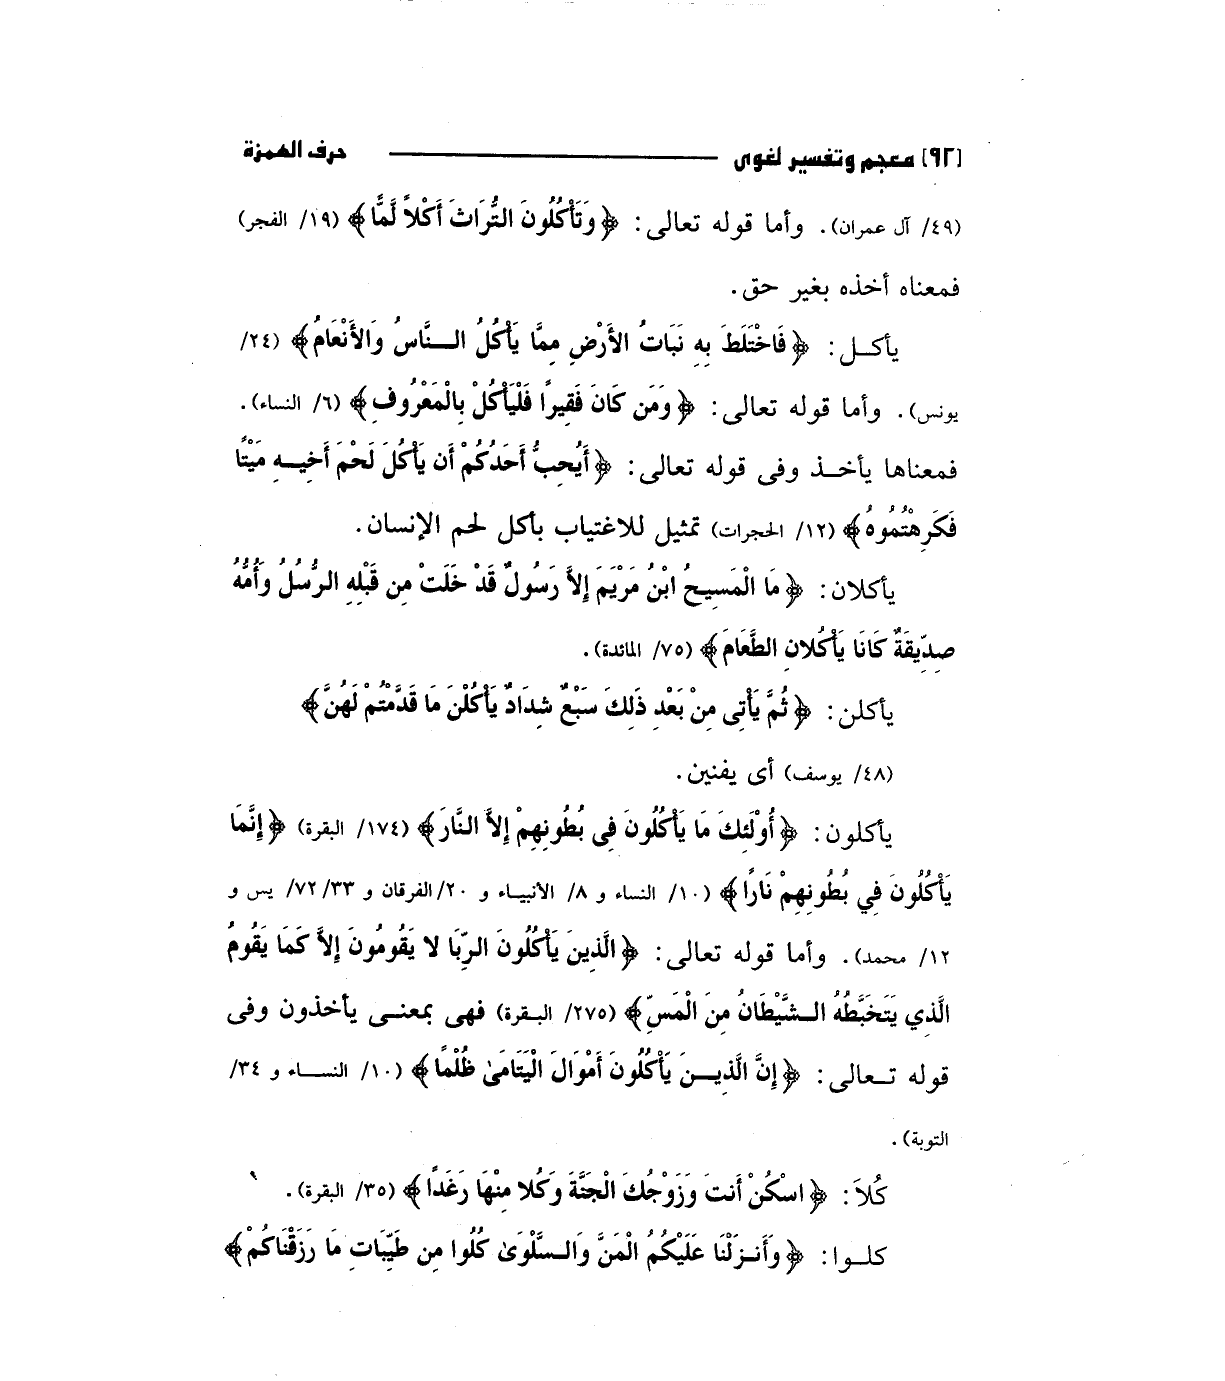 [٩٢] معجم وتفسير لغوى حرف الهمزة
(٤٩/ آل عمران). وأما قوله تعالى: ﴿وَتَأْكُلُونَ التُّرَاثَ أَكْلاً لَّمًّا﴾ (١٩/ الفجر)
فمعناه أخذه بغير حق.
يأكل: ﴿فَاخْتَلَطَ بِهِ نَبَاتُ الأَرْضِ مِمَّا يَأْكُلُ النَّاسُ وَالأَنْعَامُ﴾ (٢٤/
يونس). وأما قوله تعالى: ﴿وَمَن كَانَ فَقِيرًا فَلْيَأْكُلْ بِالْمَعْرُوفِ﴾ (٦/ النساء).
فمعناها يأخذ وفى قوله تعالى: ﴿أَيُحِبُّ أَحَدُكُمْ أَن يَأْكُلَ لَحْمَ أَخِيهِ مَيْتًا
فَكَرِهْتُمُوهُ﴾ (١٢/ الحجرات) تمثيل للاغتياب بأكل لحم الإنسان.
يأكلان: ﴿مَا الْمَسِيحُ ابْنُ مَرْيَمَ إِلاَّ رَسُولٌ قَدْ خَلَتْ مِن قَبْلِهِ الرُّسُلُ وَأُمُّهُ
صِدِّيقَةٌ كَانَا يَأْكُلانِ الطَّعَامَ﴾ (٧٥/ المائدة).
يأكلن: ﴿ثُمَّ يَأْتِى مِنْ بَعْدِ ذَلِكَ سَبْعٌ شِدَادٌ يَأْكُلْنَ مَا قَدَّمْتُمْ لَهُنَّ﴾
(٤٨/ يوسف) أى يفنين.
يأكلون: ﴿أُوْلَئِكَ مَا يَأْكُلُونَ فِى بُطُونِهِمْ إِلاَّ النَّارَ﴾ (١٧٤/ البقرة) ﴿إِنَّمَا
يَأْكُلُونَ فِي بُطُونِهِمْ نَارًا﴾ (١٠/ النساء و ٨/ الأنبياء و ٢٠/الفرقان و ٧٢/٣٣/ يس و
١٢/ محمد). وأما قوله تعالى: ﴿الَّذِينَ يَأْكُلُونَ الرِّبَا لا يَقُومُونَ إِلاَّ كَمَا يَقُومُ
الَّذِي يَتَخَبَّطُهُ الشَّيْطَانُ مِنَ الْمَسِّ﴾ (٢٧٥/ البقرة) فهى بمعنى يأخذون وفى
قوله تعالى: ﴿إِنَّ الَّذِينَ يَأْكُلُونَ أَمْوَالَ الْيَتَامَىٰ ظُلْمًا﴾ (١٠/ النساء و ٣٤/
التوبة).
كُلاَ: ﴿اسْكُنْ أَنتَ وَزَوْجُكَ الْجَنَّةَ وَكُلا مِنْهَا رَغَدًا﴾ (٣٥/ البقرة).
كلوا: ﴿وَأَنزَلْنَا عَلَيْكُمُ الْمَنَّ وَالسَّلْوَىٰ كُلُوا مِن طَيِّبَاتِ مَا رَزَقْنَاكُمْ﴾